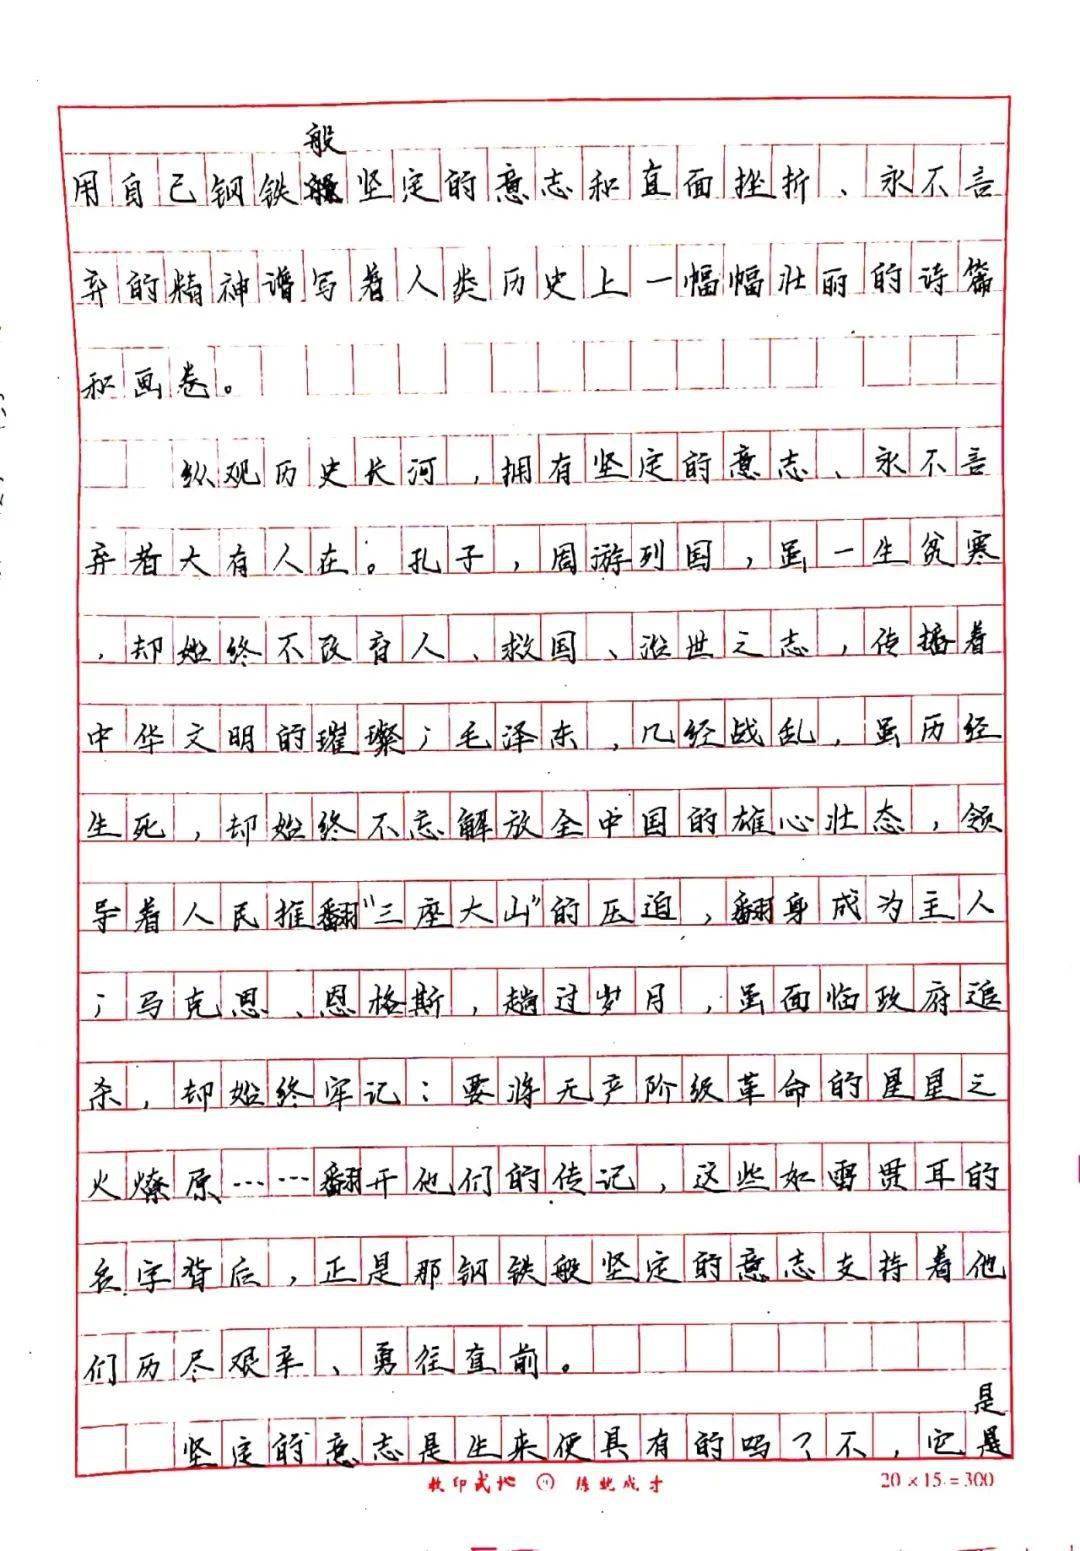 般
用自己钢铁坚定的意志和直面挫折、永不言
弃的精神谱写着人类历史上一幅幅壮丽的诗篇
和画卷。
纵观历史长河，拥有坚定的意志、永不言
弃者大有人在。孔子，周游列国，虽一生贫寒
，却始终不改育人、救国、治世之志，传播着
中华文明的璀璨；毛泽东，几经战乱，虽历经
生死，却始终不忘解放全中国的雄心壮态，领
导着人民推翻“三座大山”的压迫，翻身成为主人
；马克思、恩格斯，趟过岁月，虽面临政府追
杀，却始终牢记：要将无产阶级革命的星星之
火燎原……翻开他们的传记，这些如雷贯耳的
名字背后，正是那钢铁般坚定的意志支持着他
们历尽艰辛、勇往直前。
是
坚定的意志是生来便具有的吗？不，它是
20×15=300